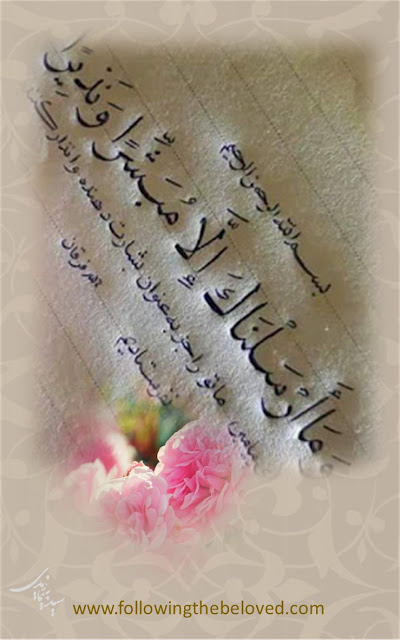 بسم الله الرحمن الرحیم
وَمَا أَرْسَلْنَاكَ إِلَّا مُبَشِّرًا وَنَذِيرًا
ما تو را جز به عنوان بشارت دهنده و انذار
نفرستادیم
فرقان
www.followingthebeloved.com